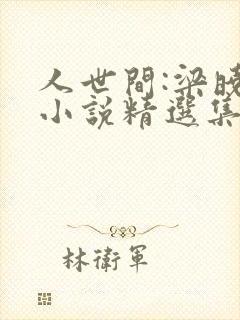 人世間:梁曉
小說精選集
林衛軍